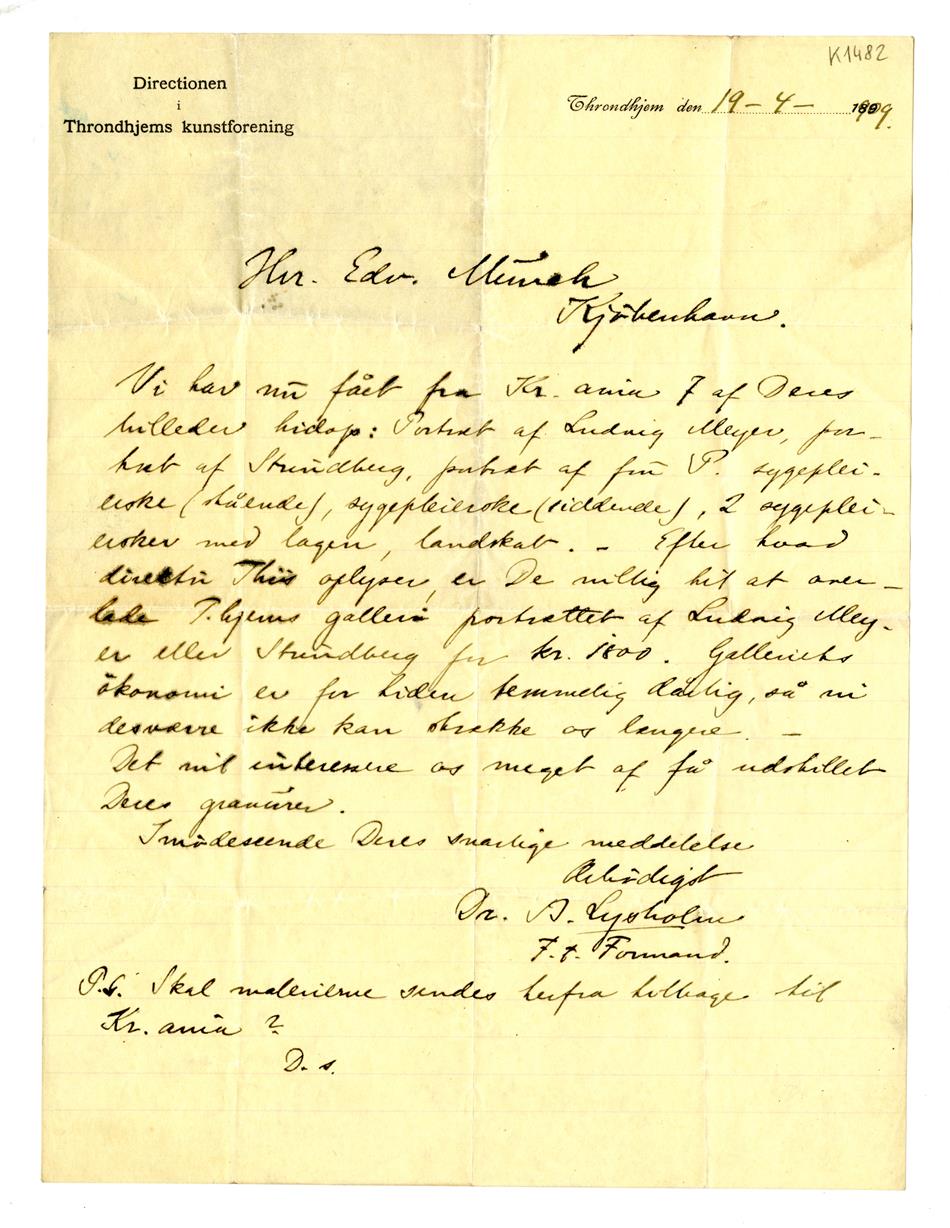 K1482
Directionen
i
Throndhjems kunstforening
Throndhjem den 19 – 4 – 1909.
Hrr. Edv. Munch
Kjöbenhavn.
Vi har nu fået fra Kr. ania 7 af Deres
billeder hidop: Portræt af Ludvig Meyer, por-
træt af Strindberg, portræt af fru P. sygeplei-
erske (stående), sygepleierske (siddende), 2 sygeplei-
ersker med lagen, landskab. – Efter hvad
direktør Thiis oplyser, er De villig til at over-
lade T.hjems galleri portrættet af Ludvig Mey-
er eller Strindberg for kr. 1800. Galleriets
økonomi er for tiden temmelig dårlig, så vi
desværre ikke kan strække os længere. –
Det vil interessere os meget at få udstillet
Deres gravürer.
Imødeseende Deres snarlige meddelelse
Ærbødigst
Dr. A. Lysholm
F. t. Formand.
P.S. Skal malerierne sendes herfra tilbage til
Kr. ania ?
D. s.